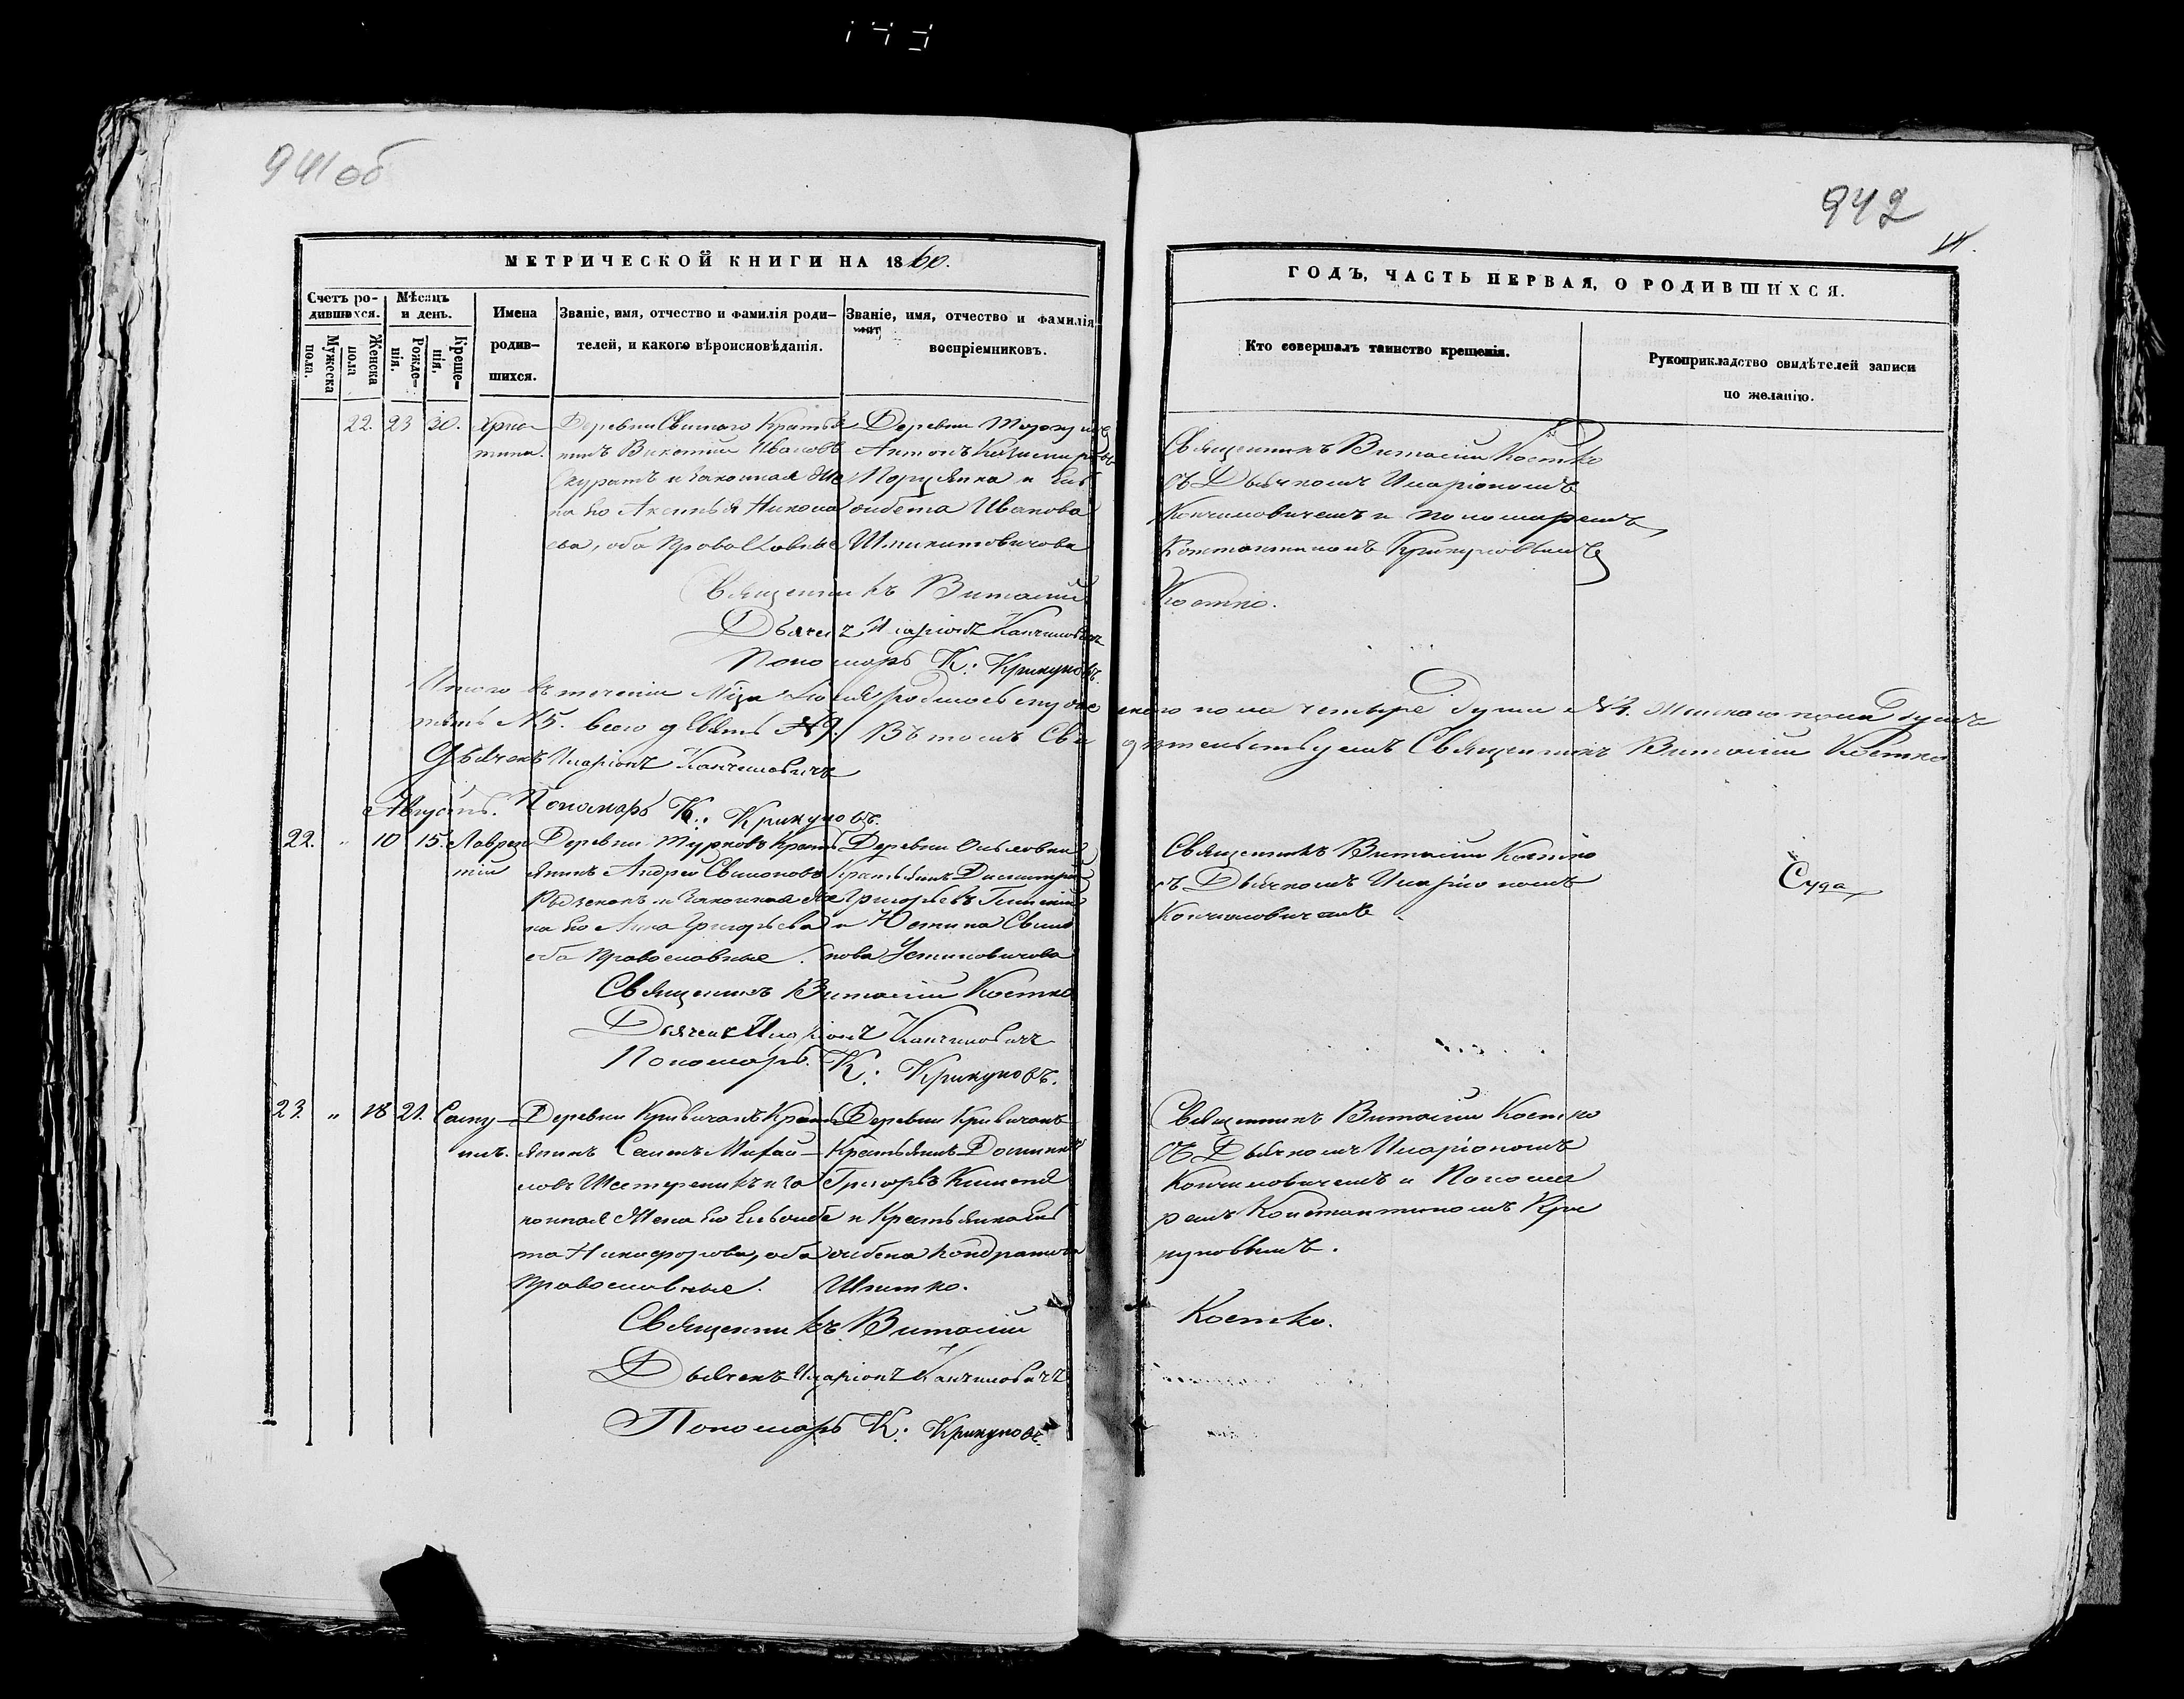 941 об
942
МЕТРИЧЕСКОЙ КНИГИ НА 1860.
ГОДЪ, ЧАСТЬ ПЕРВАЯ, О РОДИВШИХСЯ.
Счетъ родившихся.
Мужеска пола.
Женска пола
Мѣсяцъ и день.
Рожденія.
Крещенія.
Имена родившихся.
Званіе, имя, отчество и фамилія родителей, и какого вѣроисповѣданія.
Званіе, имя, отчество и фамилія воспріемниковъ.
Кто совершалъ таинство крещенія.
Рукоприкладство свидѣтелей записи по желанію.
22. 23 30.
Хрис-
тина.
Деревни
нинъ Викентій Ивановъ
Скуратъ и законная же
на его Аксинья Никола
ева, оба Православные
Деревни
Антонъ Казимировъ
и Ели
савета Иванова
Священникъ Виталій Костко
съ Дьячкомъ Иларіономъ
Кончиловичемъ и пономаремъ
Константиномъ Крикуновымъ
Священникъ Виталій Костко.
Дьячекъ Иларіонъ Кончиловичъ
Пономарь К. Крикуновъ.
Итого въ теченіи Мѣца Іюля родилось мужескаго пола четыре души №4. Женскаго пола душъ
пять №5. всего девять №9. Въ томъ Свидѣтельствуемъ Священникъ Виталій Костко
Дьячекъ Иларіонъ Кончиловичъ
Пономарь К. Крикуновъ.
Августъ.
22. " 10 15.
Лаврен
тій
Деревни Турковъ Кресть
янинъ Андрей Симоновъ
и законная же
на его Анна Григорьева
оба православные.
Деревни
Крестьянинъ Димитрій
Григорьевъ
и Юстина
нова Устиновичова
Священникъ Виталій Костко
съ Дьячкомъ Иларіономъ
Кончиловичемъ
Суда
Священникъ Виталій Костко
Дьячекъ Иларіонъ Кончиловичъ
Пономарь К. Крикуновъ.
23. " 18 21.
Саму-
илъ.
Деревни Кривичанъ Кресть
янинъ Семенъ Михай-
ловъ Шестереникъ и за
конная Жена его Елисаве
та Никифорова, оба
православные.
Деревни Кривичанъ
Крестьянинъ Доминикъ
Григорьевъ
и Крестьянка Ели
савета Кондратова
Шпитко.
Священникъ Виталій Костко
съ Дьячкомъ Иларіономъ
Кончиловичемъ и Понома
ремъ Константиномъ Кри
куновымъ.
Священникъ Виталій Костко.
Дьячекъ Иларіонъ Кончиловичъ
Пономарь К. Крикуновъ.